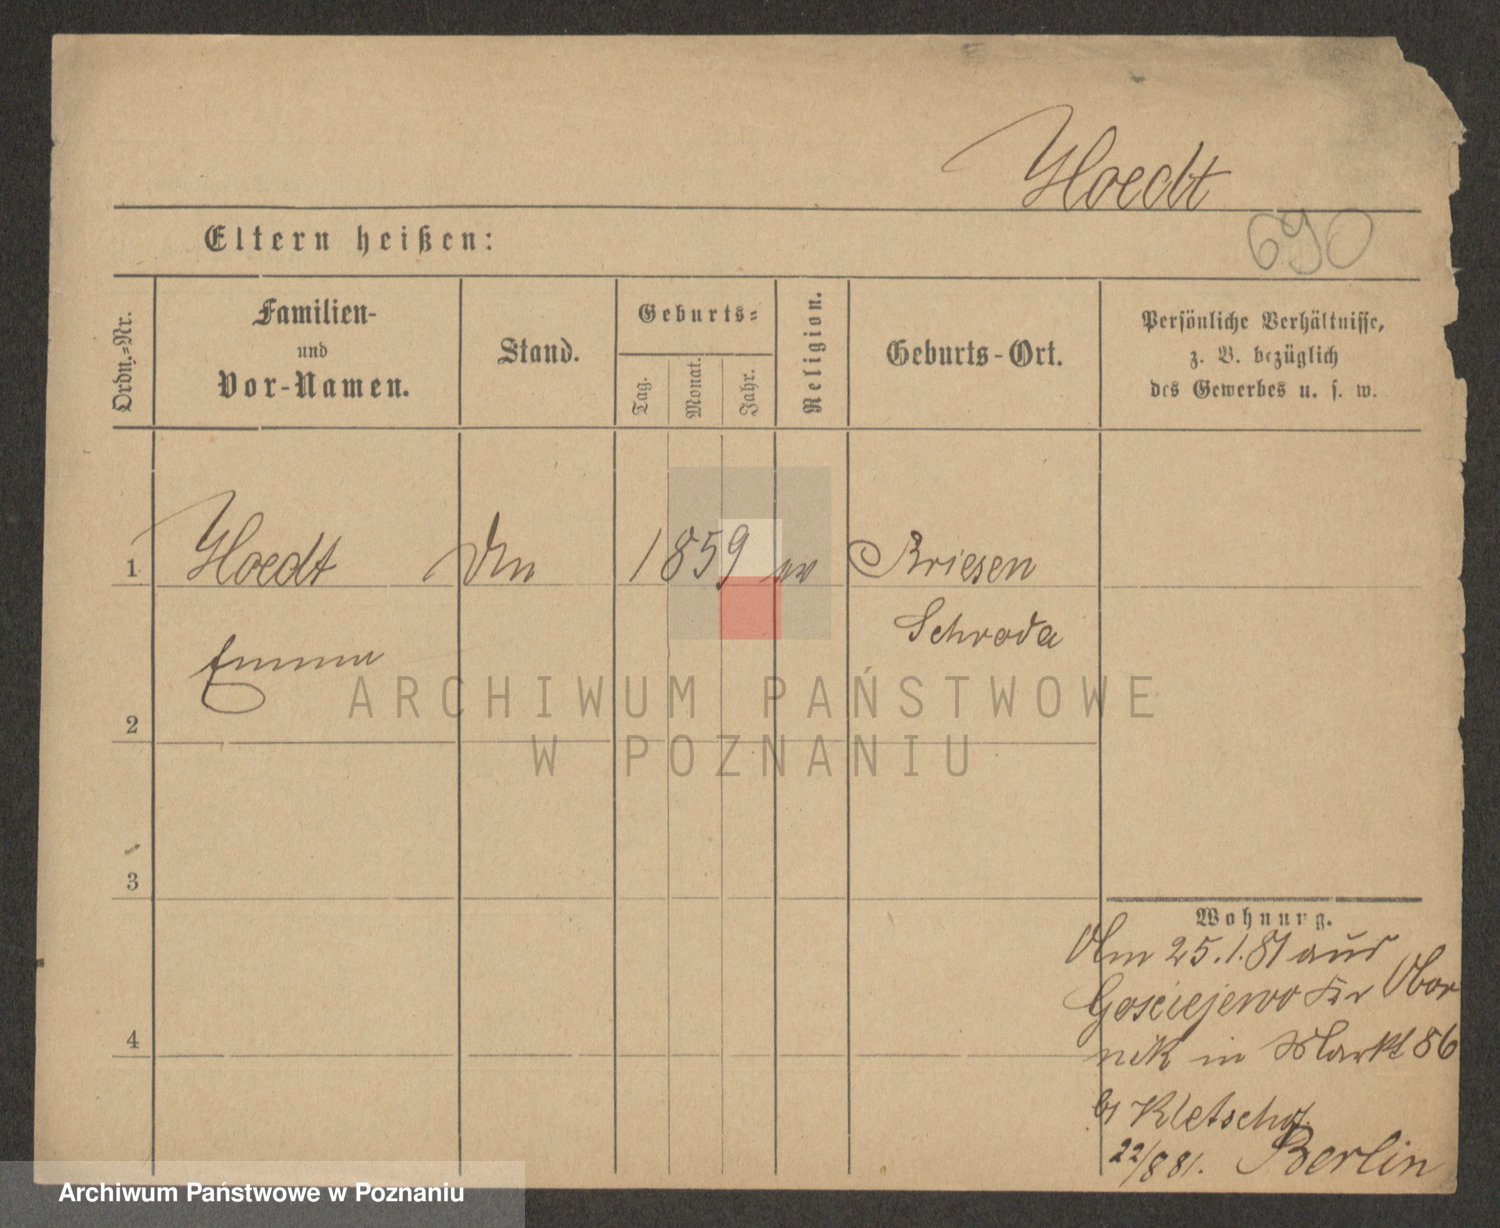 Hoedt
690
Eltern heißen:
Ordn.-Nr.
Familien-
und
Vor-Namen.
Stand.
Geburts-
Tag.
Monat.
Jahr.
Religion.
Geburts-Ort.
Persönliche Verhältnisse,
z. B. bezüglich
des Gewerbes u. s. w.
1 Hoedt 1859 Briesen
Schroda
Emma
ARCHIWUM PAŃSTWOWE
2
W POZNANIU
3
Wohnung.
25.1.81 aus
Gosciejewo Kr Obor
nik in Markt 86
4
bs Kletschof
22/8 81. Berlin
Archiwum Państwowe w Poznaniu